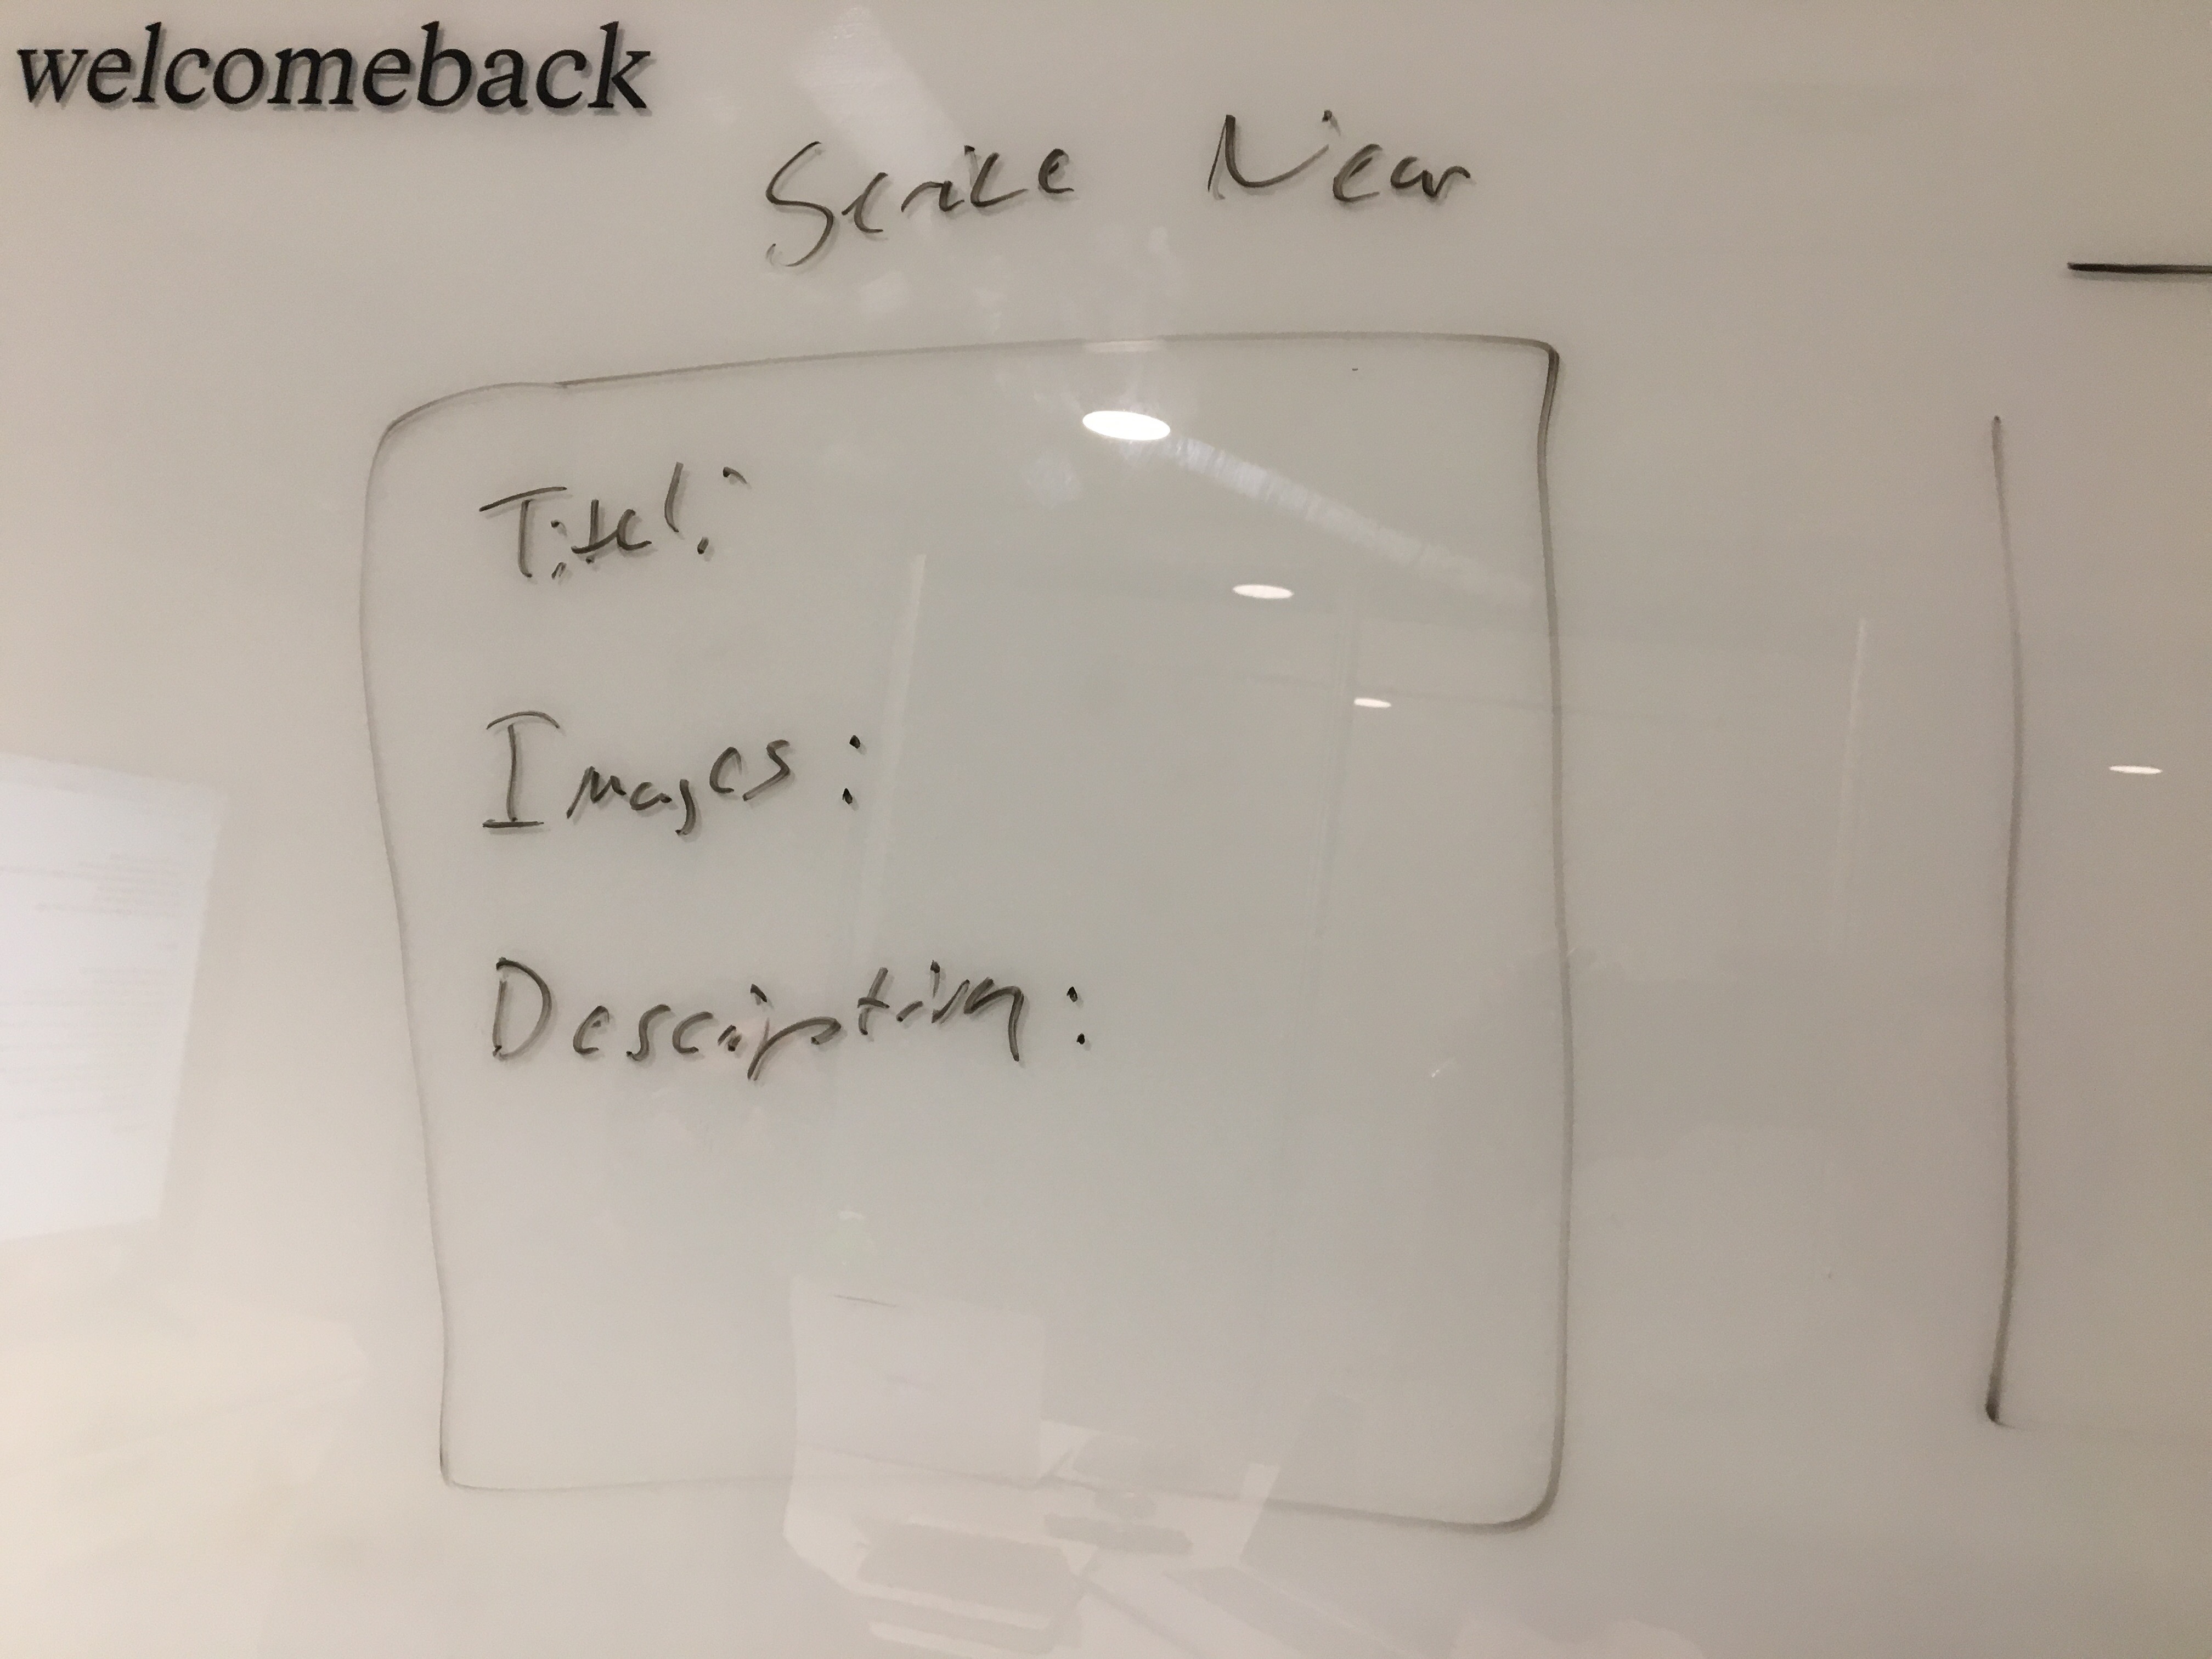 welcomeback
Service Near
Title:
Images:
Description: